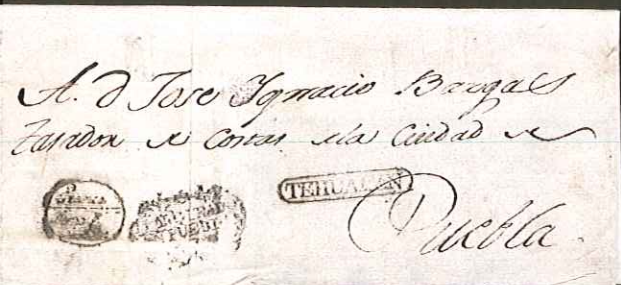 A. D Jose Ignacio Bargas
tasador de Costas de la Ciudad de
TEHUACAN
Puebla